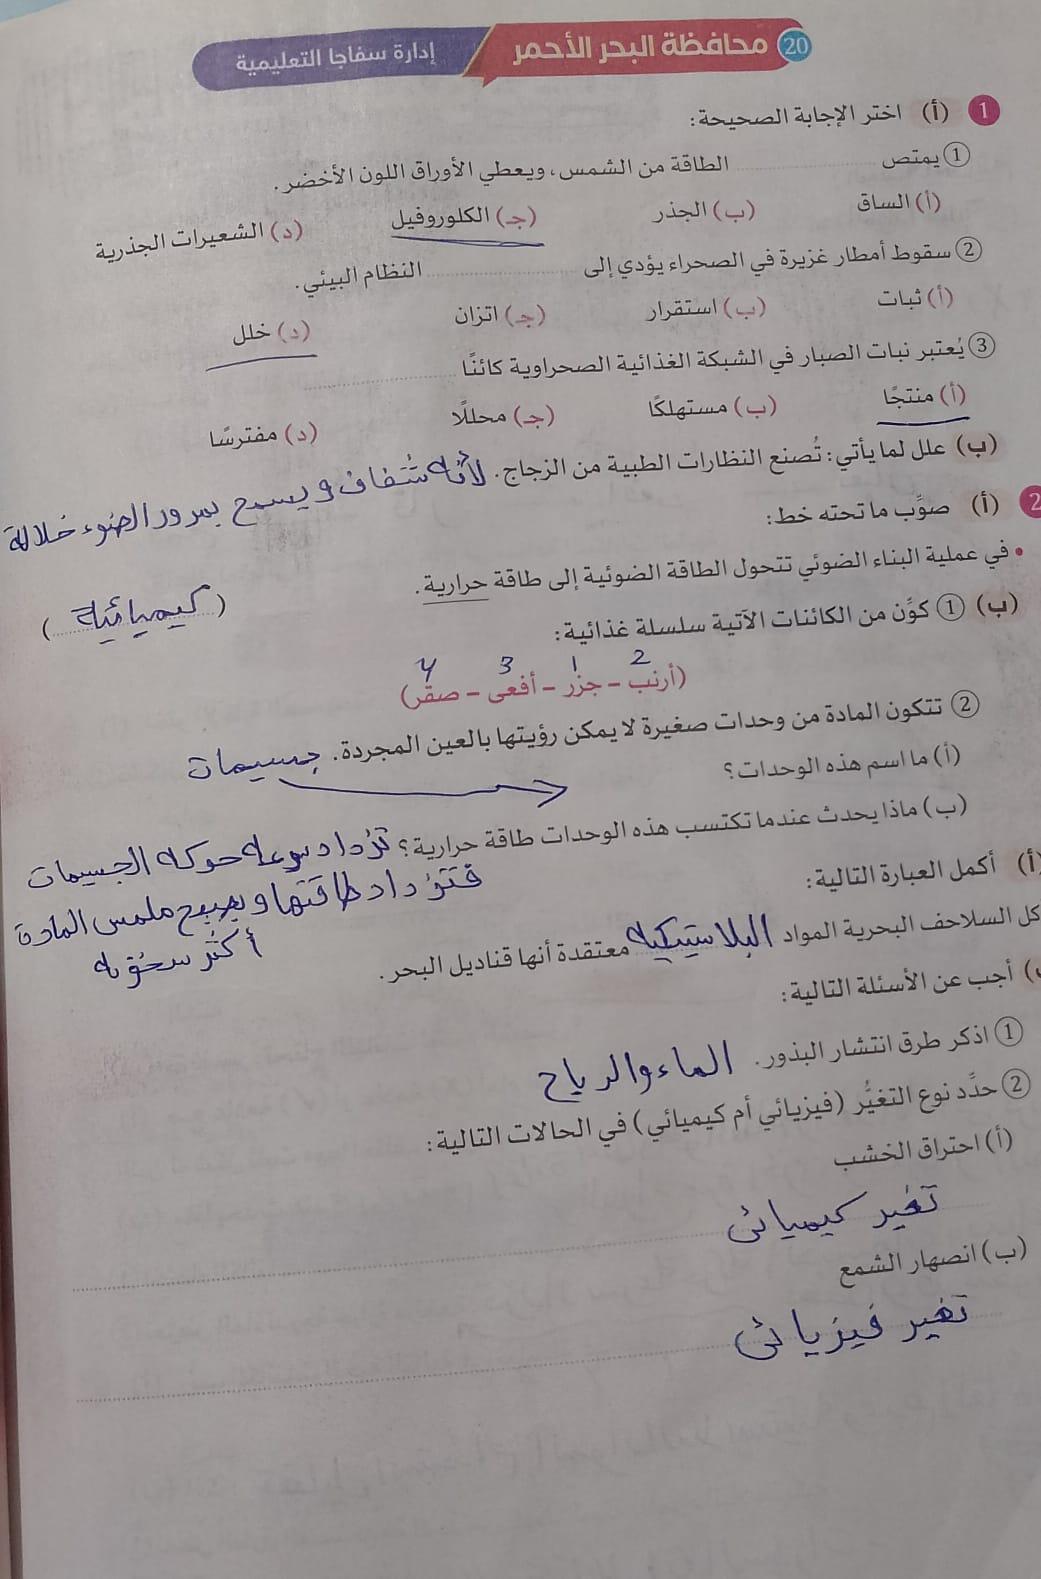 20 محافظة البحر الأحمر إدارة سفاجا التعليمية
1 (أ) اختر الإجابة الصحيحة:
① يمتص ........ الطاقة من الشمس، ويعطي الأوراق اللون الأخضر.
(أ) الساق (ب) الجذر (جـ) الكلوروفيل (د) الشعيرات الجذرية
② سقوط أمطار غزيرة في الصحراء يؤدي إلى ........ النظام البيئي.
(أ) ثبات (ب) استقرار (جـ) اتزان (د) خلل
③ يُعتبر نبات الصبار في الشبكة الغذائية الصحراوية كائنًا ........
(أ) منتجًا (ب) مستهلكًا (جـ) محللًا (د) مفترسًا
(ب) علل لما يأتي: تُصنع النظارات الطبية من الزجاج. لأنه شفاف ويسمح بمرور الضوء خلاله
2 (أ) صوِّب ما تحته خط:
• في عملية البناء الضوئي تتحول الطاقة الضوئية إلى طاقة حرارية. (كيميائية)
(ب) ① كوِّن من الكائنات الآتية سلسلة غذائية:
2 1 3 4
(أرنب - جزر - أفعى - صقر)
② تتكون المادة من وحدات صغيرة لا يمكن رؤيتها بالعين المجردة.
(أ) ما اسم هذه الوحدات؟ جسيمات
(ب) ماذا يحدث عندما تكتسب هذه الوحدات طاقة حرارية؟ تزداد سرعة حركة الجسيمات
فتزداد طاقتها ويصبح ملمس المادة
أكثر سخونة
(أ) أكمل العبارة التالية:
كل السلاحف البحرية المواد البلاستيكية معتقدة أنها قناديل البحر.
) أجب عن الأسئلة التالية:
① اذكر طرق انتشار البذور. الماء والرياح
② حدِّد نوع التغيُّر (فيزيائي أم كيميائي) في الحالات التالية:
(أ) احتراق الخشب
تغير كيميائى
(ب) انصهار الشمع
تغير فيزيائى